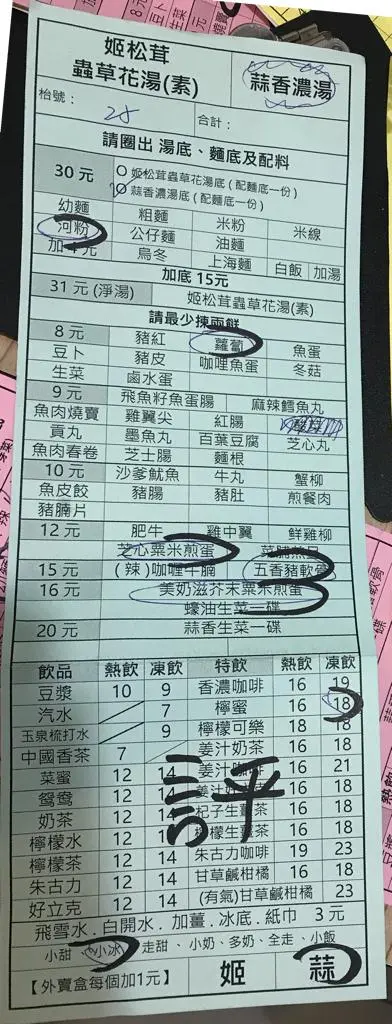 姬松茸
蟲草花湯(素)
蒜香濃湯
枱號：28
合計：
請圈出 湯底、麵底及配料
30 元
姬松茸蟲草花湯底 (配麵底一份)
蒜香濃湯湯底 (配麵底一份)
幼麵 粗麵 米粉 米線
河粉 公仔麵 油麵
加 4 元 烏冬 上海麵 白飯 加湯
加底 15元
31 元 (淨湯) 姬松茸蟲草花湯(素)
請最少揀兩餸
8 元 豬紅 蘿蔔 魚蛋
豆卜 豬皮 咖喱魚蛋 冬菇
生菜 鹵水蛋
9 元 飛魚籽魚蛋腸 麻辣鱈魚丸
魚肉燒賣 雞翼尖 紅腸
貢丸 墨魚丸 百葉豆腐 芝心丸
魚肉春卷 芝士腸 麵根
10 元 沙爹魷魚 牛丸 蟹柳
魚皮餃 豬腸 豬肚 煎餐肉
豬腩片
12 元 肥牛 雞中翼 鮮雞柳
芝心粟米煎蛋 菜脯煎蛋
15 元 (辣)咖喱牛腩 五香豬軟骨
16 元 美奶滋芥末粟米煎蛋
蠔油生菜一碟
20 元 蒜香生菜一碟
飲品 熱飲 凍飲 特飲 熱飲 凍飲
豆漿 10 9 香濃咖啡 16 19
汽水 9 檸蜜 16 18
玉泉梳打水 9 檸檬可樂 18 18
中國香茶 7 姜汁奶茶 16 18
菜蜜 12 14 姜汁咖啡 16 21
鴛鴦 12 14 16 18
奶茶 12 14 杞子生薑茶 16 18
檸檬水 12 14 檸檬生薑茶 16 18
檸檬茶 12 14 朱古力咖啡 19 23
朱古力 12 14 甘草鹹柑橘 16 18
好立克 12 14 (有氣)甘草鹹柑橘 23
評
飛雪水 . 白開水 . 加薑 . 冰底 . 紙巾 3 元
小甜、小冰、走甜、小奶、多奶、全走、小飯
【外賣盒每個加1元】 姬 蒜